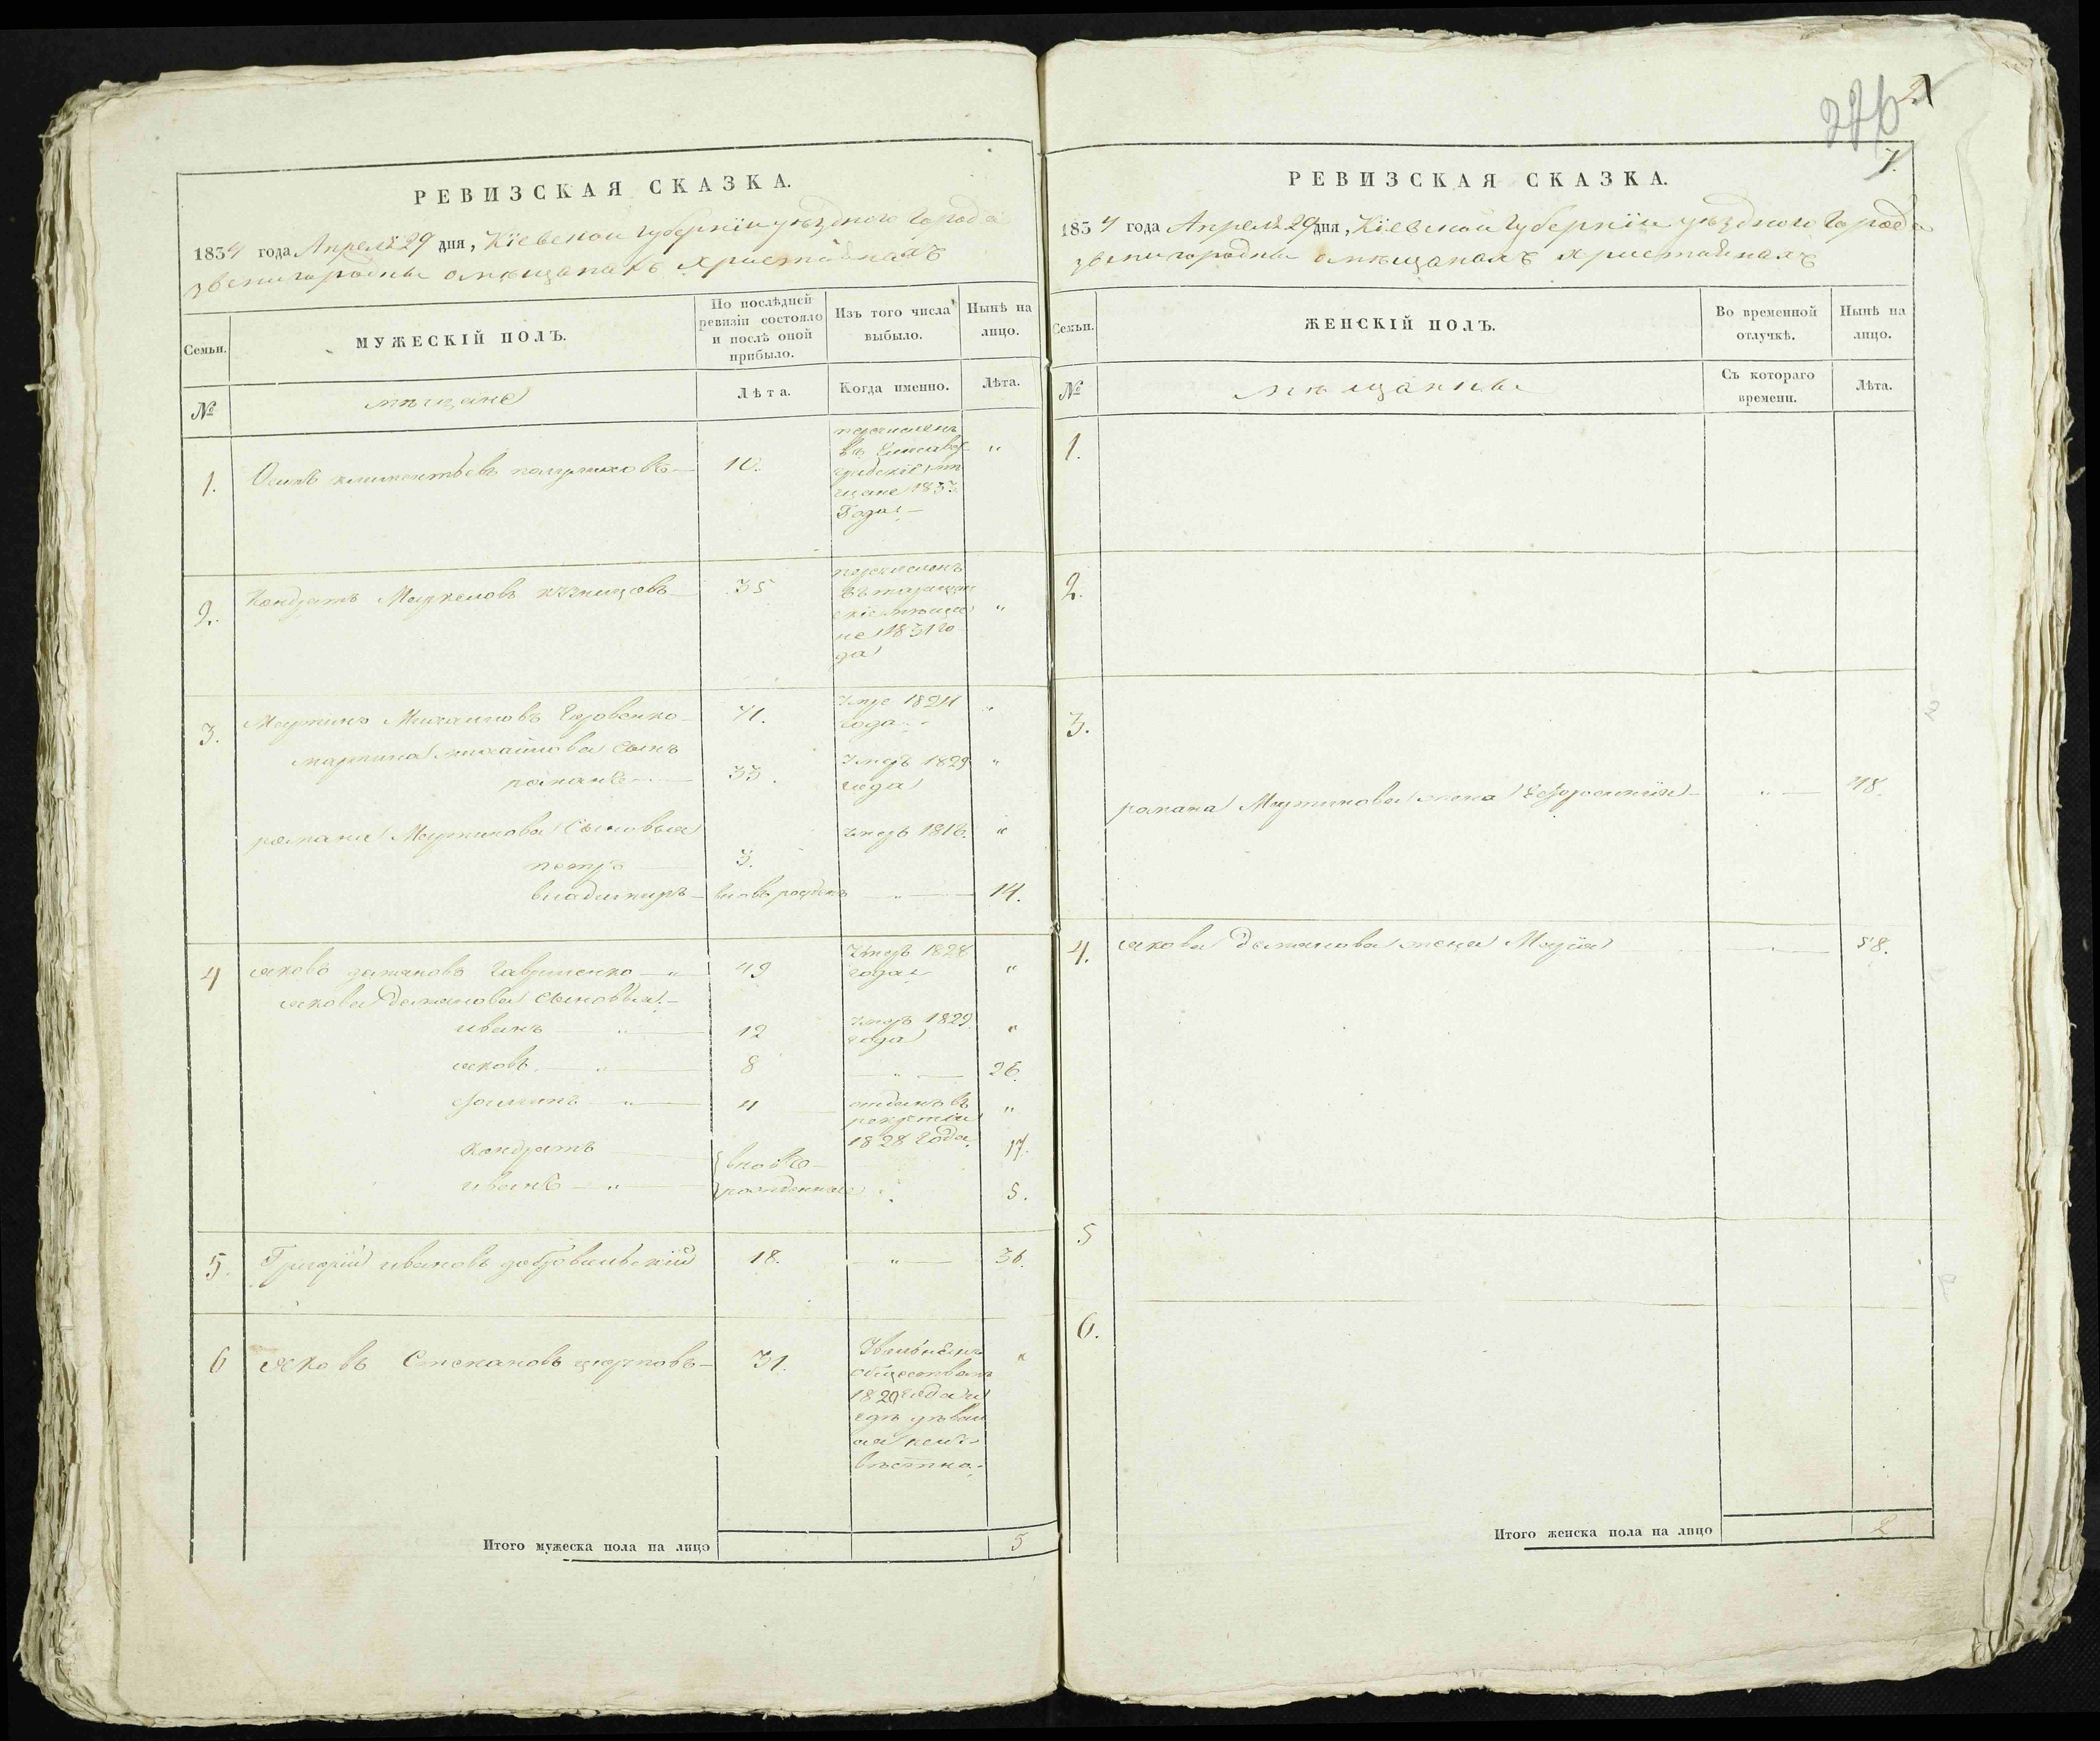 РЕВИЗСКАЯ СКАЗКА.
1834 года Апреля 29 дня, Кіевской Губерніи уѣзднаго Города
звенигородки омѣщанахъ христианахъ
Семьи.
МУЖЕСКІЙ ПОЛЪ.
По послѣдней ревизіи состояло и послѣ оной прибыло.
Изъ того числа выбыло.
Нынѣ на лицо.
№
мѣщане
Лѣта.
Когда именно.
Лѣта.
1.
Осипъ климентьевъ
10.
перечисленъ
въ Елисавет
градскіе мѣ
щане 1833
Года
"
2.
Кондратъ
35
перечисленъ
въ таращан
скіе мѣща
не 1831 го
да
"
3.
Мартинъ Михаиловъ
71.
Умре 1824
года
"
мартина михайлова сынъ
романъ
33.
Умеръ 1829
года
"
романа Мартинова Сыновья
петръ
3.
Умеръ 1816.
"
владимиръ
вновь рожденъ
"
14.
4
яковъ демяновъ Гавриленко
49
Умеръ 1828
года
"
якова Демянова сыновья
иванъ
12
умеръ 1829
года
"
яковъ
8
"
26.
4
отданъ въ
рекруты
1828 Года
"
Кондратъ
вновь
17.
иванъ
рожденные
5.
5.
Григорій ивановъ добровольскій
18.
"
36.
6
яковъ Степановъ
31.
Увольненъ
обществомъ
1820 года и
гдѣ
неиз
вѣстно.
"
Итого мужеска пола на лицо
5
21
7.
РЕВИЗСКАЯ СКАЗКА.
1834 года Апреля 29 дня, Кіевской Губерніи уѣзднаго Города
звенигородки омѣщанахъ христианахъ
Семьи.
ЖЕНСКІЙ ПОЛЪ.
Во временной отлучкѣ.
Нынѣ на лицо.
№
мѣщанки
Съ котораго времени.
Лѣта.
1.
2.
3.
романа Мартинова жена
"
48.
4.
якова Демянова жена Марія
58.
5
6.
Итого женска пола на лицо
2